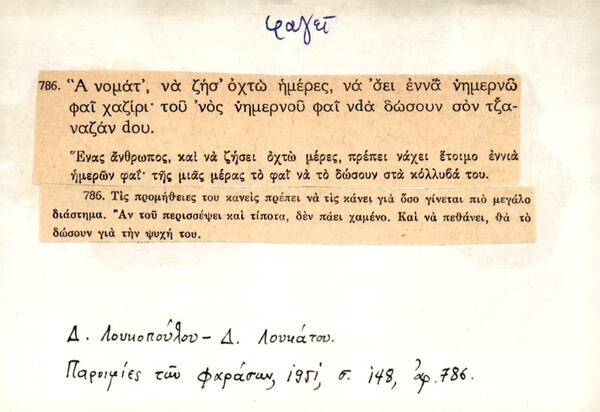 φαγεῖ
786. Ἃ νομάτ', νὰ ζήσ' ὀχτὼ ἡμέρες, νά 'σει ἐννᾶ νημερνῶ
φαΐ χαζίρι· τοῦ 'νὸς νημερνοῦ φαΐ νdὰ δώσουν σὸν τζα-
ναζάν dου.
Ἕνας ἄνθρωπος, καὶ νὰ ζήσει ὀχτὼ μέρες, πρέπει νάχει ἕτοιμο ἐννιὰ
ἡμερῶν φαΐ· τῆς μιᾶς μέρας τὸ φαῒ νὰ τὸ δώσουν στὰ κόλλυβά του.
786. Τὶς προμήθειες του κανεὶς πρέπει νὰ τὶς κάνει γιὰ ὅσο γίνεται πιὸ μεγάλο
διάστημα. Ἂν τοῦ περισσέψει καὶ τίποτα, δὲν πάει χαμένο. Καὶ νὰ πεθάνει, θὰ τὸ
δώσουν γιὰ τὴν ψυχή του.
Δ. Λουκοπούλου – Δ. Λουκάτου.
Παροιμίες τῶν Φαράσων, 1951, σ. 148, ἀρ. 786.